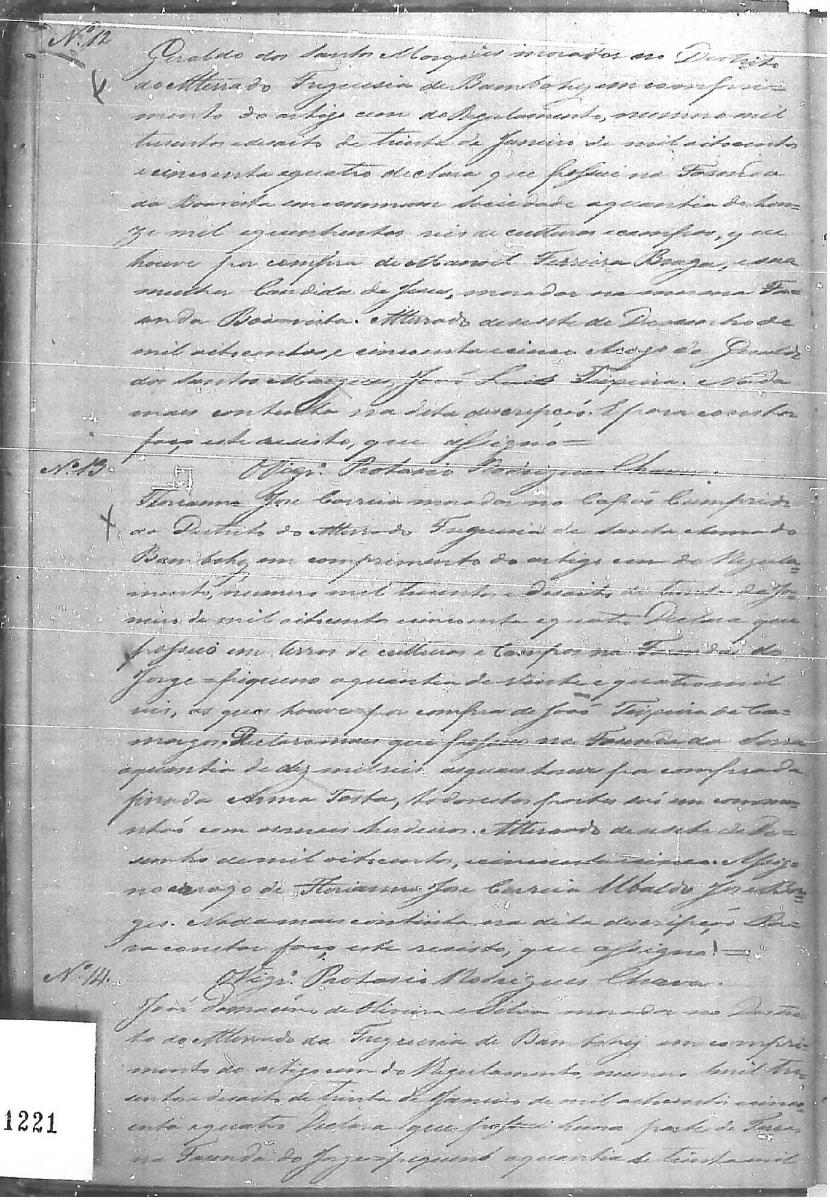 Nº 12
Geraldo dos Santos Marques morador no Destrito
do Atterrado Freguesia de Bambohy em compri-
mento do artigo cem do Regulamento, numero mil
tresentos e desoito de trinta de Janeiro de mil oitocento
e cincoenta e quatro declara que possui na Fasenda
da Boavista em commum sociedade a quantia de hon-
ze mil e quinhentos reis de culturas e campos, que
houve por compra de Manoel Ferreira Braga, e sua
mulher Candida de Jesus, morador na mesma Fa-
senda Boavista. Atterrado desesete de Desembro de
mil oitocentos e cincoenta e cinco Arogo de Geraldo
dos Santos Marques, José Luis Teixeira. Nada
mais continha na dita descripçaõ. E para constar
faço este resisto, que assigno=
O Vigrº. Protasio Rodrigues Chaves.
Nº 13.
Florianno José Correia morador no Capaõ Cumprido
do Destrito do Atterrado Freguesia de Santa Anna do
Bambohy em comprimento do artigo cem do Regula-
mento, numero mil tresentos e desoito de trinta de Ja-
neiro de mil oitocento cincoenta e quatro Declara que
possue em terras de culturas e Campos na Fasenda do
Jorge-piqueno a quantia de vinte e quatro mil
reis, as quas houve por compra de José Teixeira de Ca-
margos. Declara mais que possue na Fasenda da Serra
a quantia de dez mil reis as quais houve por compra da
finada Anna Testa, todas estas partes saõ em commu-
nhaõ com os mais herdeiros. Atterrado desesete de De-
sembro de mil oitocentos, e cincoenta e cinco. Assig-
no a rogo de Florianno José Correia Ubaldo José Bor-
ges. Nada mais continha na dita descripçaõ. Pa-
ra constar faço este resisto, que assigno!=
O Vigrº. Protasio Rodrigues Chaves.
Nº 14.
José Damaceno de Oliveira e Silva morador no Destri-
to do Atterrado da Freguesia de Bambohy em compri-
mento do artigo cem do Regulamento, numero mil tre-
sento e desoito de trinta de Janeiro de mil oitocentos cinco-
enta e quatro Declara que possui huma parte de Terras
na Fasenda do Jorge-piqueno a quantia de trinta mil
1221